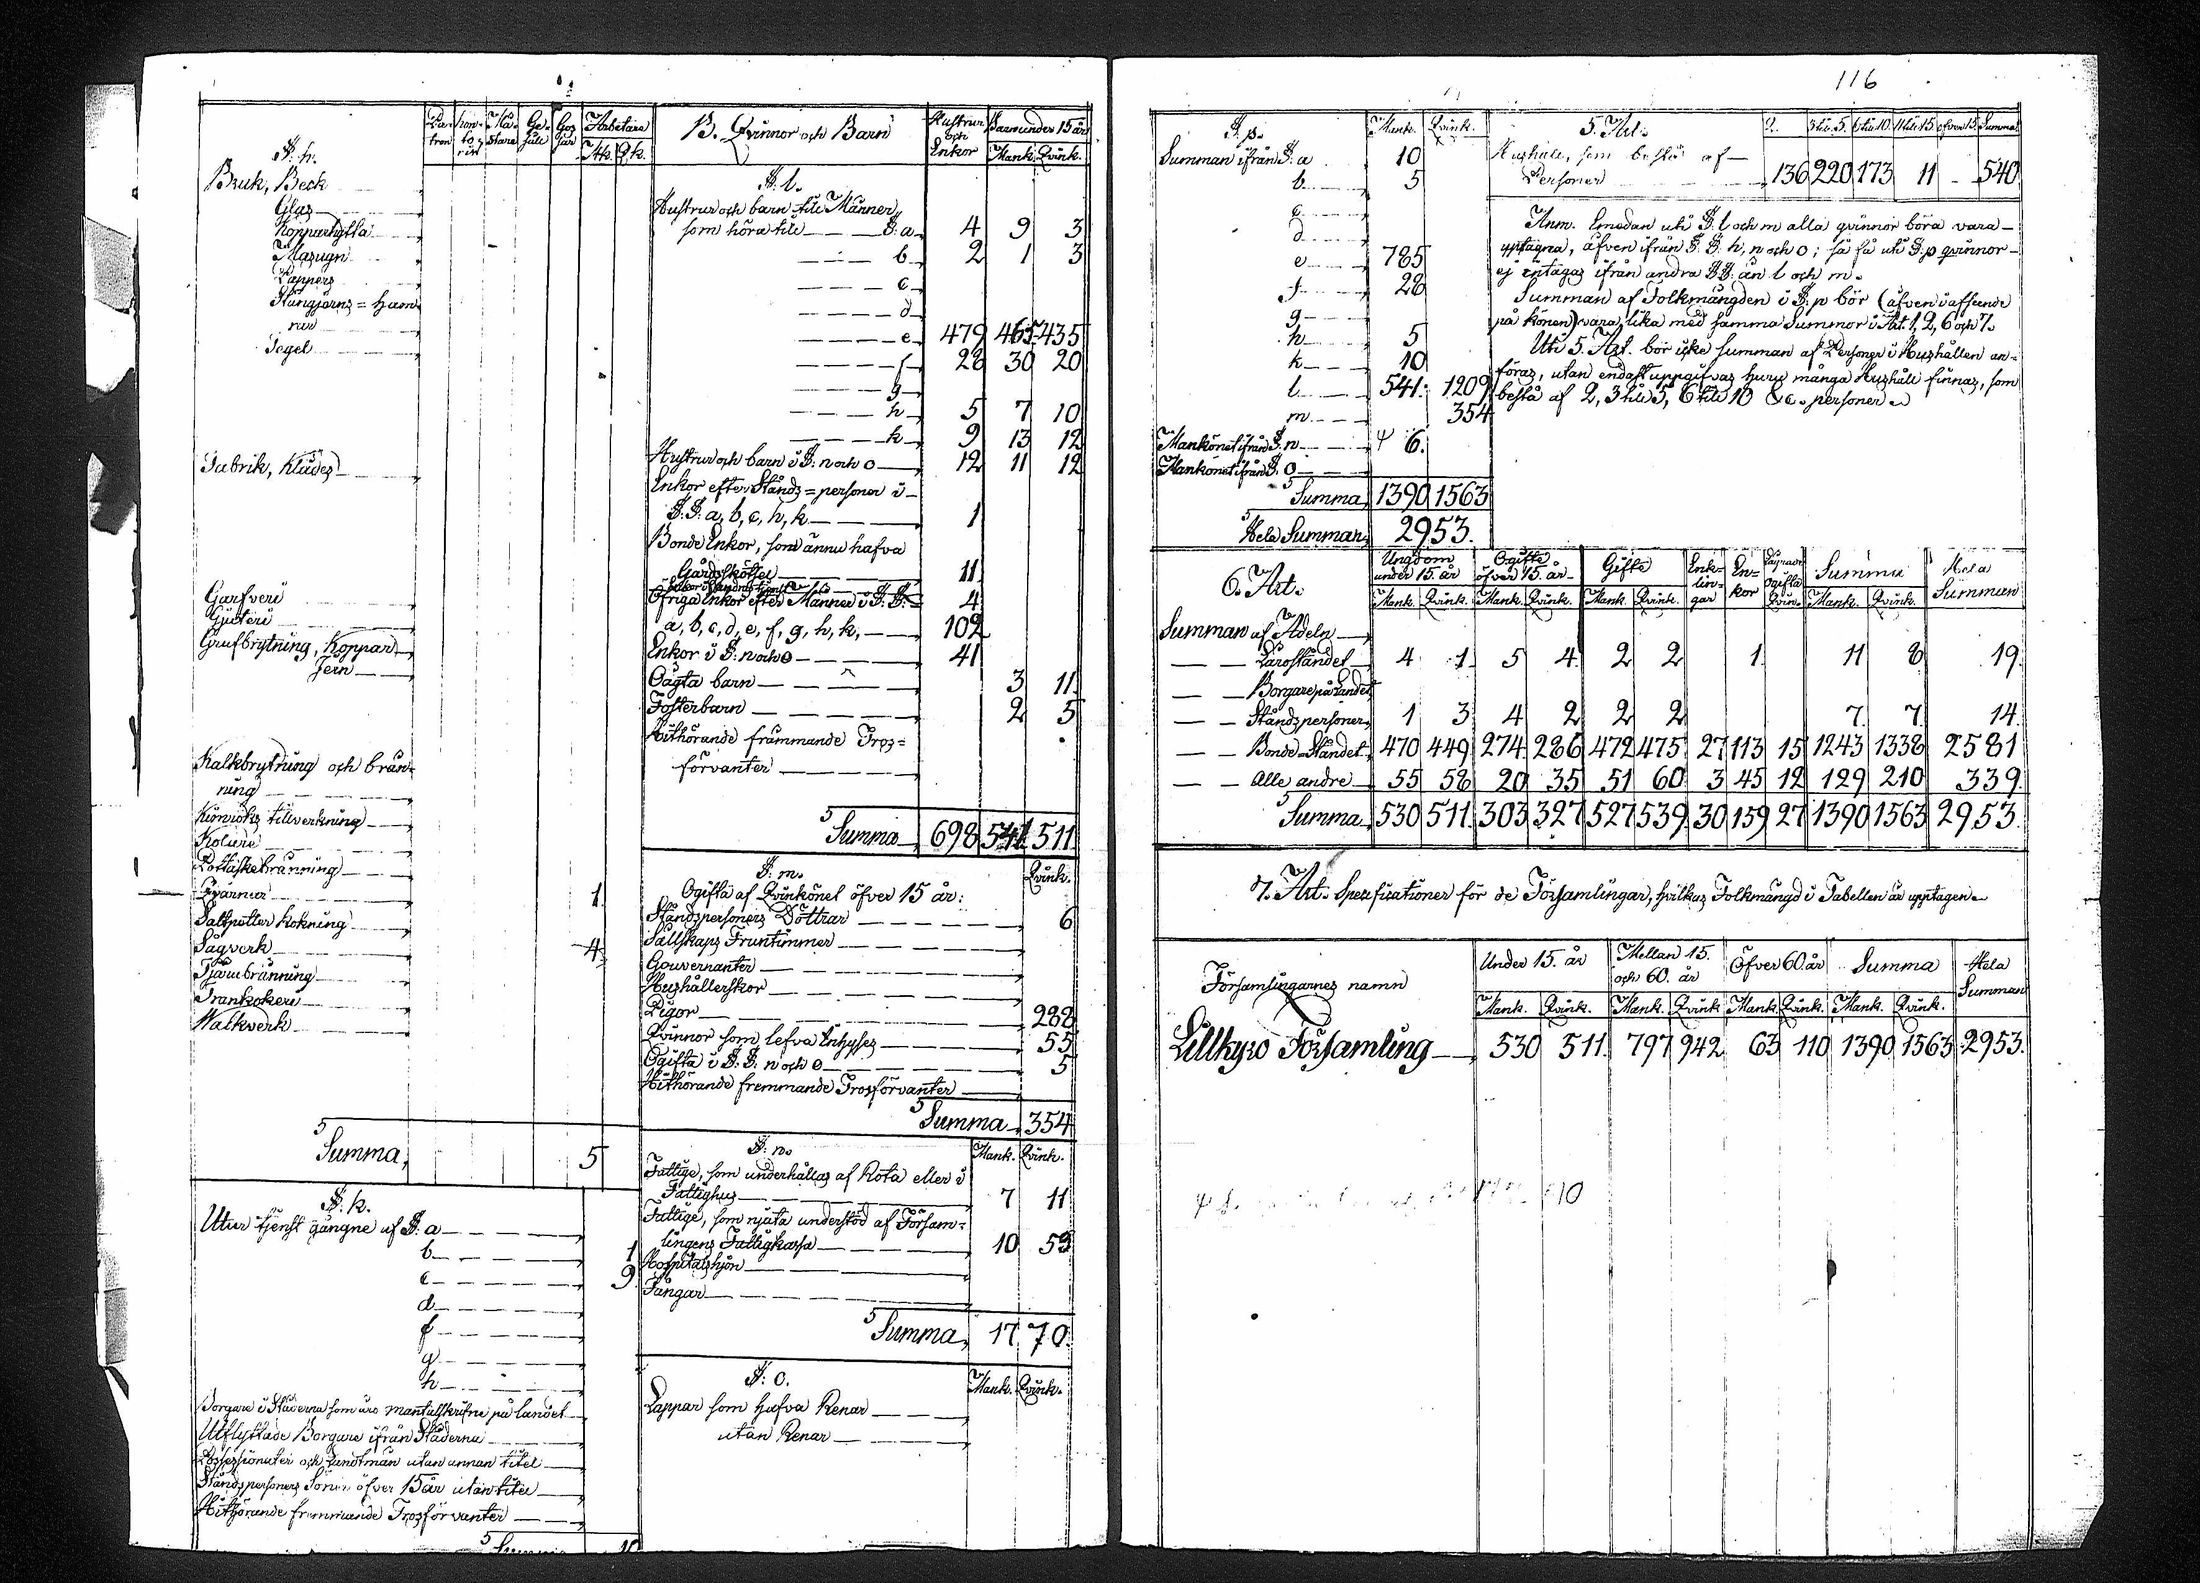 116
§. h.
Bruk, Beck
Glas
Kopparhytta
Masugn
Pappers
Stångjerns = Ham
rar
Segel
Fabrik, Klädes
Garfveri
Gjuteri
Grufbrytning, Koppar
Jern
Kalkbrytning och brän-
ning
Kimröks tillverkning
Kolare
Pottaskebränning
Qvarnar 1
Saltpetter kokning
Sågverk 4
Tjärubränning
Trankokeri
Walkverk
Summa 5
§. k.
Utur tjenst gångne af §. a
b 1
c 9
d
f
g
h
Borgare i Städerna som äro mantalskrifne på landet
Utflyttade Borgare ifrån Städerna
Possessionater och Landtmän utan annan titel
Ståndspersoners Söner öfver 15 år utan titel
Hithörande fremmande Trosförvanter
Summa 10
B. Qvinnor och Barn Hustrur och Enkor Barn under 15 år
Mank. Qvink.
§. l.
Hustrur och barn till Männer,
som höra till §: a 4 9 3
b 2 1 3
c
d
e 479 465 435
f 28 30 20
g
h 5 7 10
k 9 13 12
Hustrur och barn i §: n och o 12 11 12
Enkor efter Stånds = personer i
§. §. a, b, c, h, k 1
Bonde Enkor, som ännu hafva
Gårdsskötsel 11
Öfriga Enkor efter Männer i §. §. 4
a, b, c, d, e, f, g, h, k, 102
Enkor i §: n och o 41
Oägta barn 3 11
Fosterbarn 2 5
Hithörande främmande Tros=
förvanter
Summa 698 541 511
§. m. Qvink.
Ogifta af Qvinkönet öfver 15 år:
Ståndspersoners Döttrar 6
Sällskaps Fruntimmer
Gouvernanter
Hushållerskor
Pigor 288
Qvinnor som lefva Inhyses 55
Ogifta i §. §: n och o 5
Hithörande fremmande Trosförvanter
Summa 354
§. n. Mank. Qvink.
Fattige, som underhållas af Rota eller i
Fattighus 7 11
Fattige, som njuta understöd af Försam=
lingens Fattigkassa 10 59
Hospitalshjon
Fångar
Summa 17 70
§. o. Mank. Qvink.
Lappar som hafva Renar
utan Renar
§. p. Mank. Qvink.
Summan ifrån §. a 10
b 5
c
d
e 785
f 28
g
h 5
k 10
l 541 1209
m 354
Mankönet ifrån §. n 6
Mankönet ifrån §. o
Summa 1390 1563
Hela Summan 2953.
5. Art. 2. 3 till 5. 6 till 10. 11 till 15. öfver 15. Summa
Hushåll, som bestå af
Personer 136 220 173 11 - 540
Anm. Emedan uti §. l och m alla qvinnor böra vara
upptagna, äfven ifrån §. §. h, n och o; så få uti §. p qvinnor
ej intagas ifrån andra §§. än l och m.
Summan af Folkmängden i §. p bör (äfven i afseende
på könen) vara lika med samma Summor i Art. 1, 2, 6 och 7.
Uti 5. Art. bör icke summan af Personer i Hushållen an=
föras, utan endast uppgifvas huru många Hushåll finnas, som
bestå af 2, 3 till 5, 6 till 10 &c. personer.
6. Art. Ungdom under 15. år Ogifte öfver 15. år Gifte Enklingar Enkor Summa Hela Summan
Mank. Qvink. Mank. Qvink. Mank. Qvink. Mank. Qvink.
Summan af Adeln
Läroståndet 4 1 5 4 2 2 1 11 8 19.
Borgare på Landet
Ståndspersoner 1 3 4 2 2 2 7 7 14.
Bonde Ståndet 470 449 274 286 472 475 27 113 15 1243 1338 2581
Alle andre 55 58 20 35 51 60 3 45 12 129 210 339.
Summa 530 511 303 327 527 539 30 159 27 1390 1563 2953.
7. Art. Spesifikationer för de Församlingar, hvilkas Folkmängd i Tabellen är upptagen
Församlingarnes namn Under 15. år Mellan 15. och 60. år Öfver 60. år Summa Hela Summan
Mank. Qvink. Mank. Qvink. Mank. Qvink. Mank. Qvink.
Lillkyro Församling 530 511 797 942 63 110 1390 1563 2953.